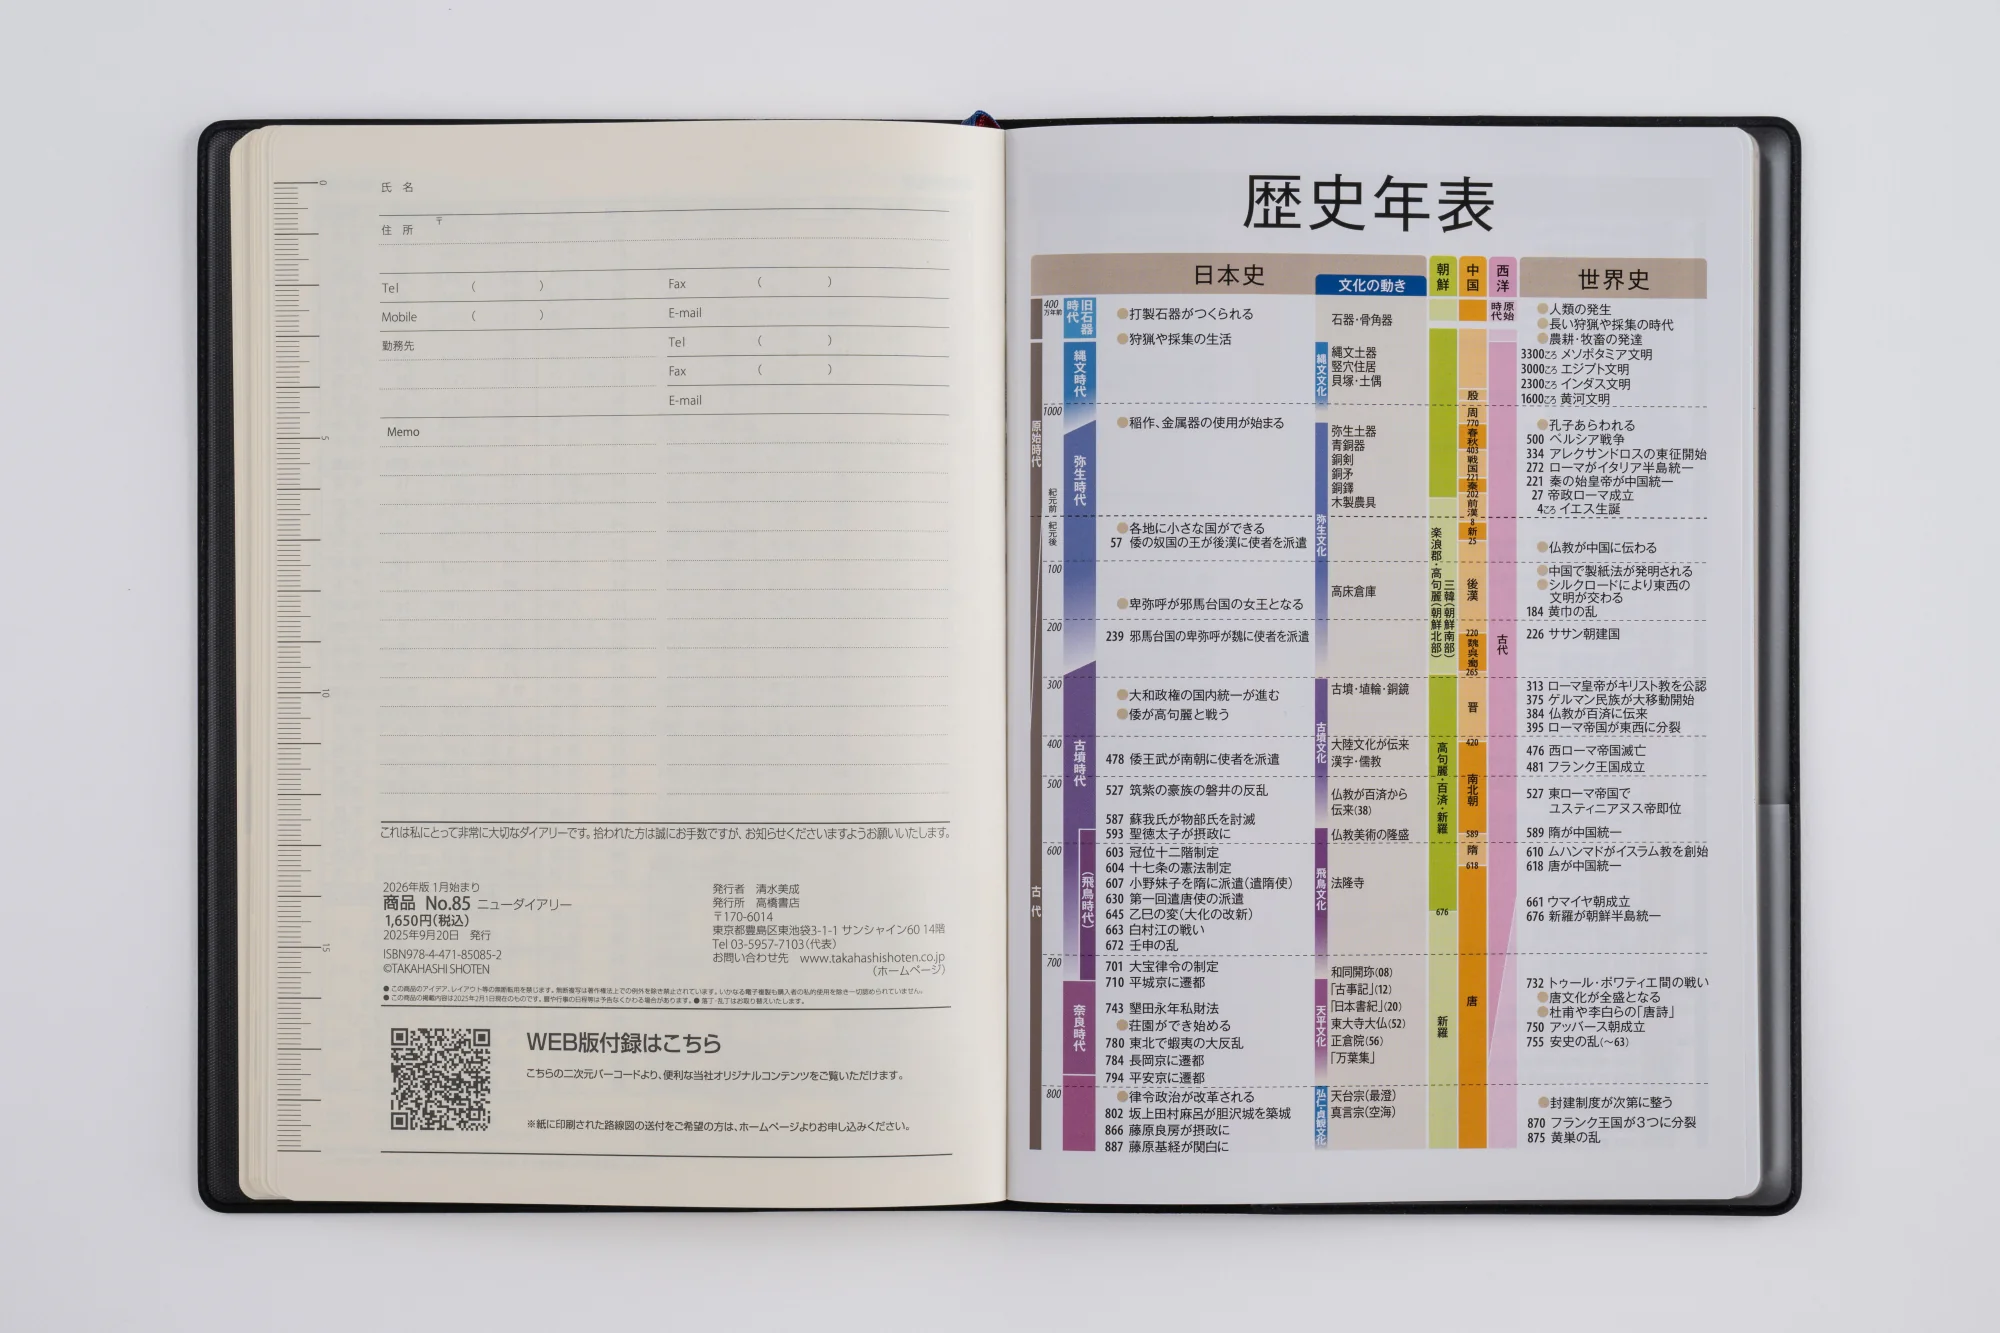 0
5
10
15
氏 名
住 所 〒
Tel ( ) Fax ( )
Mobile ( ) E-mail
勤務先 Tel ( )
Fax ( )
E-mail
Memo
これは私にとって非常に大切なダイアリーです。拾われた方は誠にお手数ですが、お知らせくださいますようお願いいたします。
2026年版 1月始まり
商品 No.85 ニューダイアリー
1,650円(税込)
2025年9月20日 発行
ISBN978-4-471-85085-2
©TAKAHASHI SHOTEN
発行者 清水美成
発行所 高橋書店
〒170-6014
東京都豊島区東池袋3-1-1 サンシャイン60 14階
Tel 03-5957-7103(代表)
お問い合わせ先 www.takahashishoten.co.jp
(ホームページ)
●この商品のアイデア、レイアウト等の無断転用を禁じます。無断複写は著作権法上での例外を除き禁止されています。いかなる電子複製も購入者の私的使用を除き一切認められていません。
●この商品の掲載内容は2025年2月1日現在のものです。暦や行事の日程等は予告なくかわる場合があります。●落丁・乱丁はお取り替えいたします。
WEB版付録はこちら
こちらの二次元バーコードより、便利な当社オリジナルコンテンツをご覧いただけます。
※紙に印刷された路線図の送付をご希望の方は、ホームページよりお申し込みください。
歴史年表
日本史
文化の動き
朝鮮
中国
西洋
世界史
400万年前
1000
紀元前
紀元後
100
200
300
400
500
600
700
800
原始時代
古代
旧石器時代
縄文時代
弥生時代
古墳時代
(飛鳥時代)
奈良時代
●打製石器がつくられる
●狩猟や採集の生活
●稲作、金属器の使用が始まる
●各地に小さな国ができる
57 倭の奴国の王が後漢に使者を派遣
●卑弥呼が邪馬台国の女王となる
239 邪馬台国の卑弥呼が魏に使者を派遣
●大和政権の国内統一が進む
●倭が高句麗と戦う
478 倭王武が南朝に使者を派遣
527 筑紫の豪族の磐井の反乱
587 蘇我氏が物部氏を討滅
593 聖徳太子が摂政に
603 冠位十二階制定
604 十七条の憲法制定
607 小野妹子を隋に派遣(遣隋使)
630 第一回遣唐使の派遣
645 乙巳の変(大化の改新)
663 白村江の戦い
672 壬申の乱
701 大宝律令の制定
710 平城京に遷都
743 墾田永年私財法
●荘園ができ始める
780 東北で蝦夷の大反乱
784 長岡京に遷都
794 平安京に遷都
●律令政治が改革される
802 坂上田村麻呂が胆沢城を築城
866 藤原良房が摂政に
887 藤原基経が関白に
縄文文化
弥生文化
古墳文化
飛鳥文化
天平文化
弘仁・貞観文化
石器・骨角器
縄文土器
竪穴住居
貝塚・土偶
弥生土器
青銅器
銅剣
銅矛
銅鐸
木製農具
高床倉庫
古墳・埴輪・銅鏡
大陸文化が伝来
漢字・儒教
仏教が百済から
伝来(38)
仏教美術の隆盛
法隆寺
和同開珎(08)
「古事記」(12)
「日本書紀」(20)
東大寺大仏(52)
正倉院(56)
「万葉集」
天台宗(最澄)
真言宗(空海)
楽浪郡・高句麗(朝鮮北部)
三韓(朝鮮南部)
高句麗・百済・新羅
676
新羅
殷
周
770
春秋
403
戦国
221
秦
202
前漢
8
新
25
後漢
220
魏・呉・蜀
265
晋
420
南北朝
589
隋
618
唐
原始時代
古代
●人類の発生
●長い狩猟や採集の時代
●農耕・牧畜の発達
3300ごろ メソポタミア文明
3000ごろ エジプト文明
2300ごろ インダス文明
1600ごろ 黄河文明
●孔子あらわれる
500 ペルシア戦争
334 アレクサンドロスの東征開始
272 ローマがイタリア半島統一
221 秦の始皇帝が中国統一
27 帝政ローマ成立
4ごろ イエス生誕
●仏教が中国に伝わる
●中国で製紙法が発明される
●シルクロードにより東西の
文明が交わる
184 黄巾の乱
226 ササン朝建国
313 ローマ皇帝がキリスト教を公認
375 ゲルマン民族が大移動開始
384 仏教が百済に伝来
395 ローマ帝国が東西に分裂
476 西ローマ帝国滅亡
481 フランク王国成立
527 東ローマ帝国で
ユスティニアヌス帝即位
589 隋が中国統一
610 ムハンマドがイスラム教を創始
618 唐が中国統一
661 ウマイヤ朝成立
676 新羅が朝鮮半島統一
732 トゥール・ポワティエ間の戦い
●唐文化が全盛となる
●杜甫や李白らの「唐詩」
750 アッバース朝成立
755 安史の乱(〜63)
●封建制度が次第に整う
870 フランク王国が3つに分裂
875 黄巣の乱